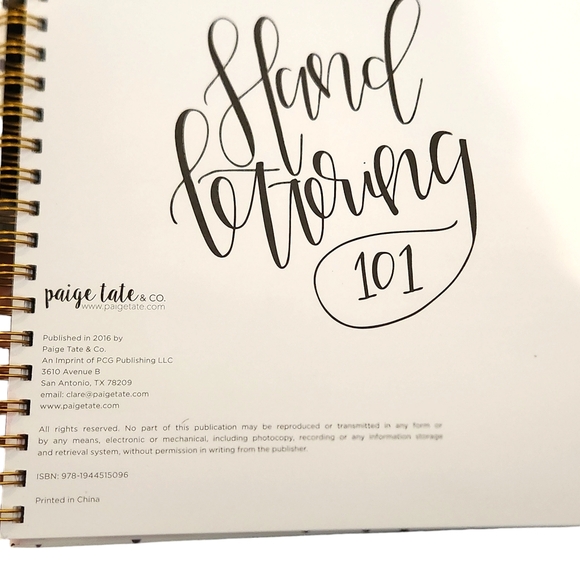 Hand
lettering
101
paige tate & CO.
www.paigetate.com
Published in 2016 by
Paige Tate & Co.
An Imprint of PCG Publishing LLC
3610 Avenue B
San Antonio, TX 78209
email: clare@paigetate.com
www.paigetate.com
All rights reserved. No part of this publication may be reproduced or transmitted in any form or
by any means, electronic or mechanical, including photocopy, recording or any information storage
and retrieval system, without permission in writing from the publisher.
ISBN: 978-1944515096
Printed in China